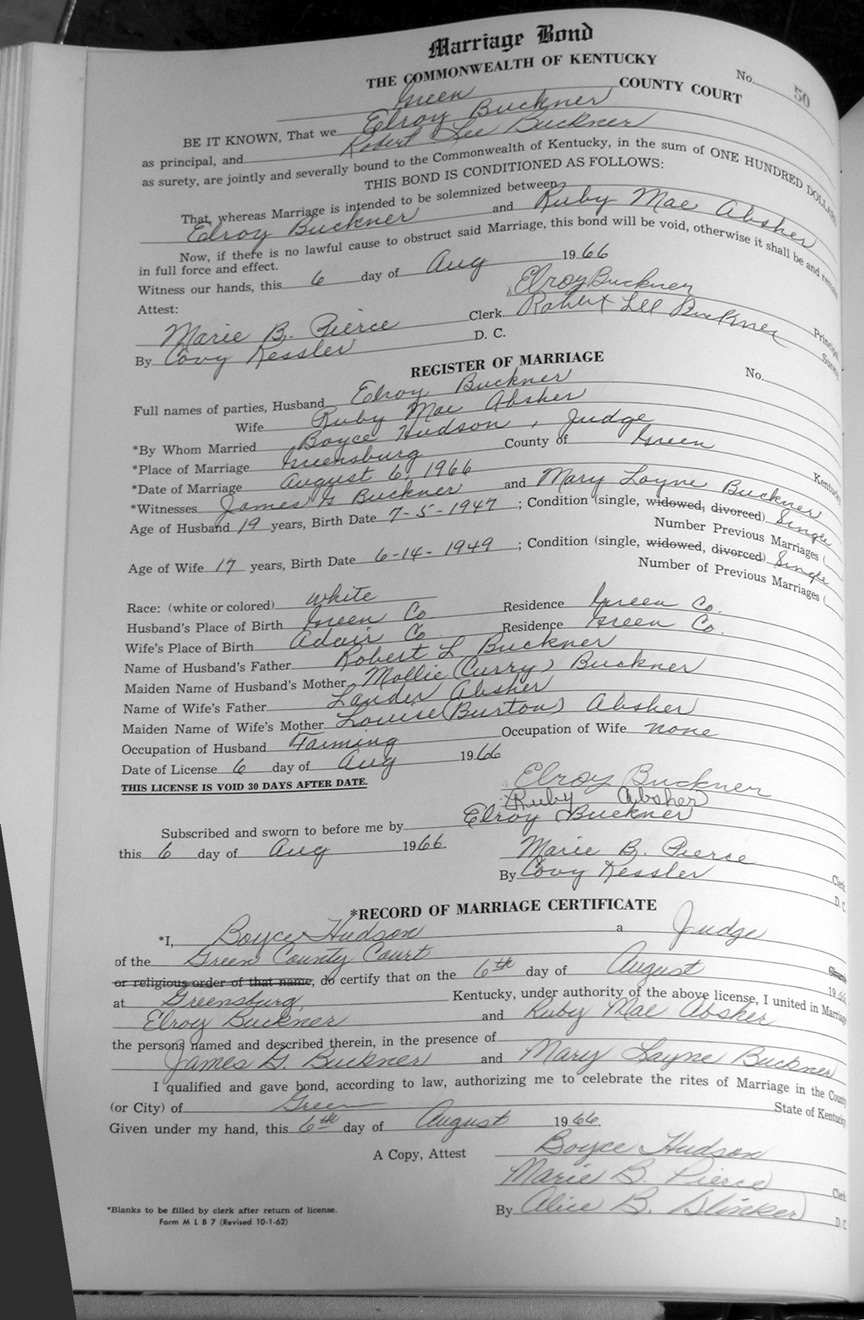 Marriage Bond
No. 50
THE COMMONWEALTH OF KENTUCKY
Green COUNTY COURT
BE IT KNOWN, That we Elroy Buckner
as principal, and Robert Lee Buckner
as surety, are jointly and severally bound to the Commonwealth of Kentucky, in the sum of ONE HUNDRED DOLLARS
THIS BOND IS CONDITIONED AS FOLLOWS:
That, whereas Marriage is intended to be solemnized between
Elroy Buckner and Ruby Mae Absher
Now, if there is no lawful cause to obstruct said Marriage, this bond will be void, otherwise it shall be and remain
in full force and effect.
Witness our hands, this 6 day of Aug 1966
Elroy Buckner
Principal
Attest:
Robert Lee Buckner
Surety
Marie B. Pierce Clerk.
By Covy Kessler D. C.
REGISTER OF MARRIAGE
No.
Full names of parties, Husband Elroy Buckner
Wife Ruby Mae Absher
*By Whom Married Boyce Hudson, Judge
*Place of Marriage Greensburg County of Green Kentucky
*Date of Marriage August 6, 1966
*Witnesses James G Buckner and Mary Layne Buckner
Age of Husband 19 years, Birth Date 7-5-1947 ; Condition (single, widowed, divorced) Single
Number Previous Marriages (
Age of Wife 17 years, Birth Date 6-14-1949 ; Condition (single, widowed, divorced) Single
Number of Previous Marriages (
Race: (white or colored) white
Husband's Place of Birth Green Co. Residence Green Co.
Wife's Place of Birth Adair Co Residence Green Co.
Name of Husband's Father Robert L Buckner
Maiden Name of Husband's Mother Mollie (Curry) Buckner
Name of Wife's Father Lander Absher
Maiden Name of Wife's Mother Louise (Burton) Absher
Occupation of Husband Farming Occupation of Wife none
Date of License 6 day of Aug 1966
THIS LICENSE IS VOID 30 DAYS AFTER DATE.
Elroy Buckner
Ruby Absher
Subscribed and sworn to before me by Elroy Buckner
this 6 day of Aug 1966.
Marie B. Pierce Clerk
By Covy Kessler D. C.
*RECORD OF MARRIAGE CERTIFICATE
*I, Boyce Hudson a Judge
of the Green County Court
or religious order of that name, do certify that on the 6th day of August 1966
at Greensburg, Kentucky, under authority of the above license, I united in Marriage
Elroy Buckner and Ruby Mae Absher
the persons named and described therein, in the presence of
James G. Buckner and Mary Layne Buckner
I qualified and gave bond, according to law, authorizing me to celebrate the rites of Marriage in the County
(or City) of Green State of Kentucky
Given under my hand, this 6th day of August 1966.
Boyce Hudson
A Copy, Attest
Marie B. Pierce Clerk
By Alice B. Slinker D. C
*Blanks to be filled by clerk after return of license.
Form M L B 7 (Revised 10-1-62)